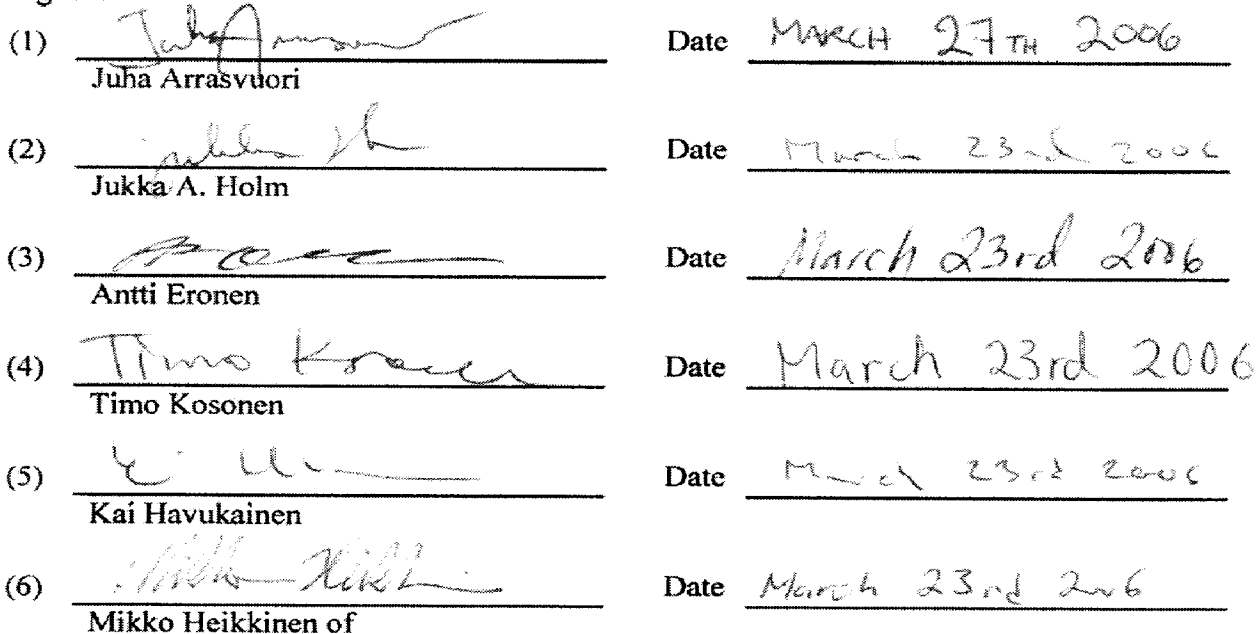 (1) Juha Arrasvuori Date MARCH 27TH 2006
Juha Arrasvuori
(2) Jukka Holm Date March 23rd 2006
Jukka A. Holm
(3) Date March 23rd 2006
Antti Eronen
(4) Timo Kosonen Date March 23rd 2006
Timo Kosonen
(5) Date March 23rd 2006
Kai Havukainen
(6) Mikko Heikkinen Date March 23rd 2006
Mikko Heikkinen of